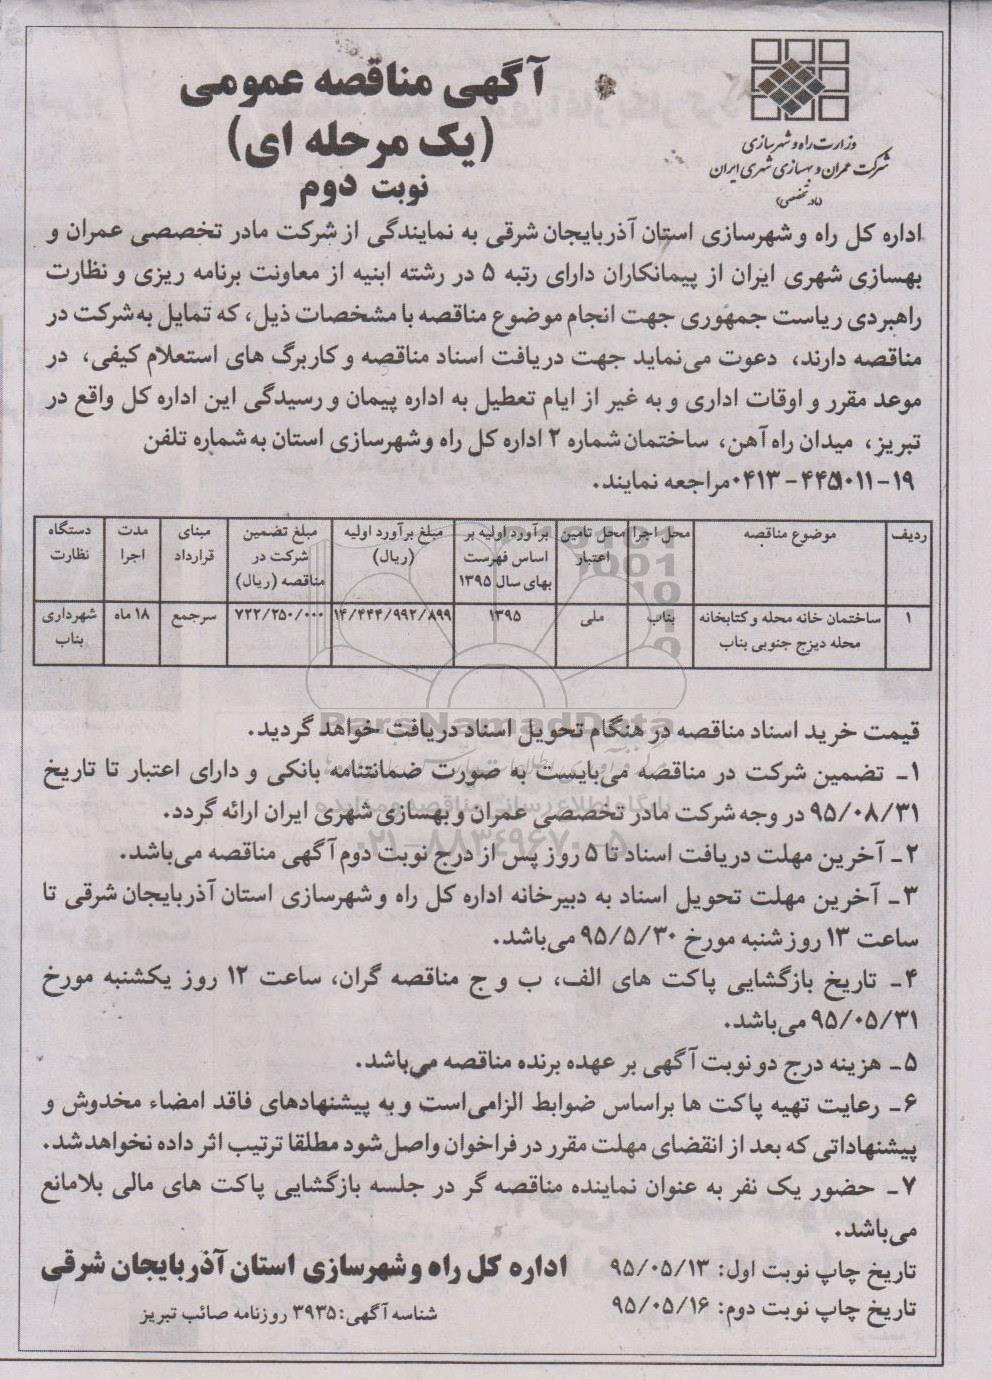 آگهی مناقصه عمومی
(یک مرحله ای)
نوبت دوم
وزارت راه و شهرسازی
شرکت عمران و بهسازی شهری ایران
(مادر تخصصی)
اداره کل راه و شهرسازی استان آذربایجان شرقی به نمایندگی از شرکت مادر تخصصی عمران و
بهسازی شهری ایران از پیمانکاران دارای رتبه ۵ در رشته ابنیه از معاونت برنامه ریزی و نظارت
راهبردی ریاست جمهوری جهت انجام موضوع مناقصه با مشخصات ذیل، که تمایل به شرکت در
مناقصه دارند، دعوت می‌نماید جهت دریافت اسناد مناقصه و کاربرگ های استعلام کیفی، در
موعد مقرر و اوقات اداری و به غیر از ایام تعطیل به اداره پیمان و رسیدگی این اداره کل واقع در
تبریز، میدان راه آهن، ساختمان شماره ۲ اداره کل راه و شهرسازی استان به شماره تلفن
مراجعه نمایند.
ردیف | موضوع مناقصه | محل اجرا | محل تامین اعتبار | برآورد اولیه بر اساس فهرست بهای سال ۱۳۹۵ | مبلغ برآورد اولیه (ریال) | مبلغ تضمین شرکت در مناقصه (ریال) | مبنای قرارداد | مدت اجرا | دستگاه نظارت
۱ | ساختمان خانه محله و کتابخانه محله دیزج جنوبی بناب | بناب | ملی | ۱۳۹۵ | ۱۴/۴۴۴/۹۹۲/۸۹۹ | ۷۲۲/۲۵۰/۰۰۰ | سرجمع | ۱۸ ماه | شهرداری بناب
قیمت خرید اسناد مناقصه در هنگام تحویل اسناد دریافت خواهد گردید.
۱ـ تضمین شرکت در مناقصه می‌بایست به صورت ضمانتنامه بانکی و دارای اعتبار تا تاریخ
۹۵/۰۸/۳۱ در وجه شرکت مادر تخصصی عمران و بهسازی شهری ایران ارائه گردد.
۲ـ آخرین مهلت دریافت اسناد تا ۵ روز پس از درج نوبت دوم آگهی مناقصه می‌باشد.
۳ـ آخرین مهلت تحویل اسناد به دبیرخانه اداره کل راه و شهرسازی استان آذربایجان شرقی تا
ساعت ۱۳ روز شنبه مورخ ۹۵/۵/۳۰ می‌باشد.
۴ـ تاریخ بازگشایی پاکت های الف، ب و ج مناقصه گران، ساعت ۱۲ روز یکشنبه مورخ
۹۵/۰۵/۳۱ می‌باشد.
۵ـ هزینه درج دو نوبت آگهی بر عهده برنده مناقصه می‌باشد.
۶ـ رعایت تهیه پاکت ها براساس ضوابط الزامی است و به پیشنهادهای فاقد امضاء مخدوش و
پیشنهاداتی که بعد از انقضای مهلت مقرر در فراخوان واصل شود مطلقا ترتیب اثر داده نخواهد شد.
۷ـ حضور یک نفر به عنوان نماینده مناقصه گر در جلسه بازگشایی پاکت های مالی بلامانع
می‌باشد.
تاریخ چاپ نوبت اول: ۹۵/۰۵/۱۳
تاریخ چاپ نوبت دوم: ۹۵/۰۵/۱۶
اداره کل راه و شهرسازی استان آذربایجان شرقی
شناسه آگهی: ۳۹۳۵ روزنامه صائب تبریز
ParsNamadData
پایگاه اطلاع رسانی مناقصه و مزایده
۰۲۱-۸۸۳۴۹۶۷۰-۵